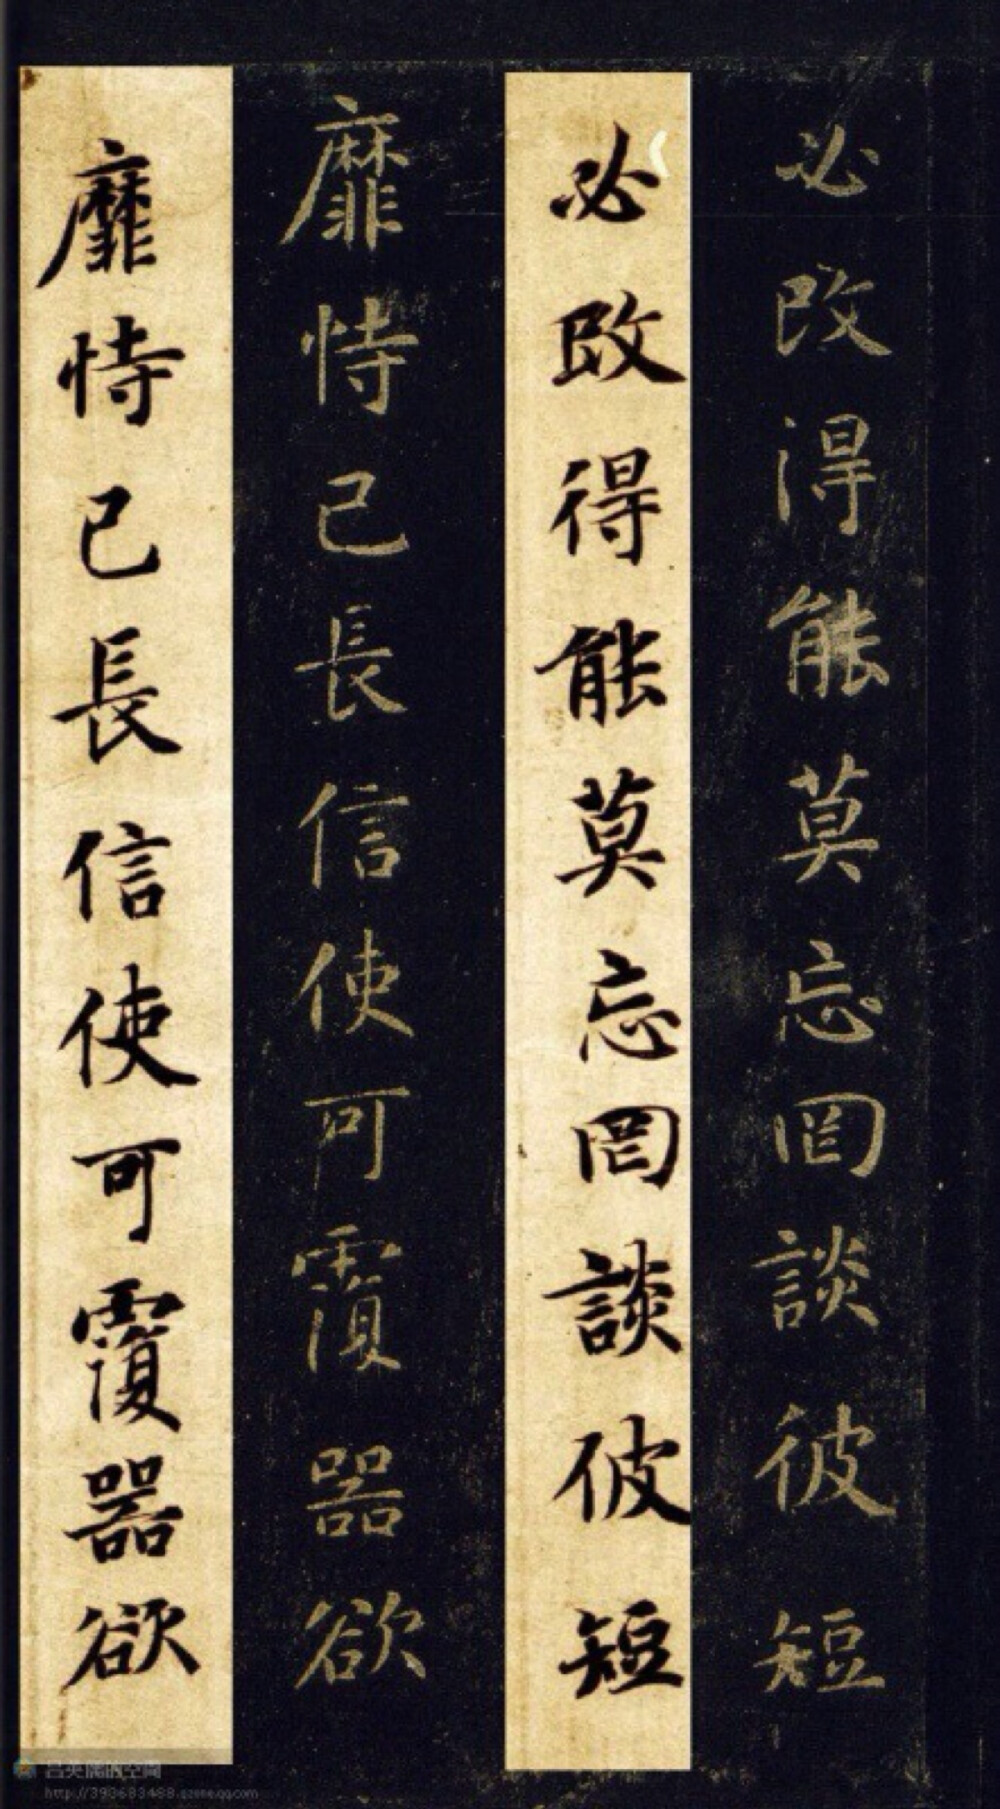 必改得能莫忘罔談彼短
必改得能莫忘罔談彼短
靡恃己長信使可覆器欲
靡恃己長信使可覆器欲
吕英儒的空間
http://393683488.qzone.qq.com